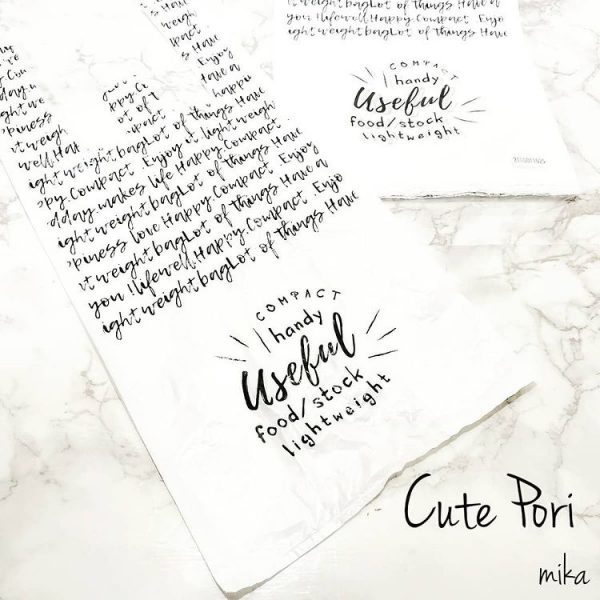 weight bagLot of Things Have a
you !lifewell.Happy.Compact Enjo
ightweightbagLot of Things Have
COMPACT
handy
Useful
food/stock
lightweight
Enjoy
Have a
happy
ightweight bagLot of Things Have
Compact Enjoy it lightweigh
day makes life Happy.Compact
ightweight bagLot of Things Have
piness love Happy.Compact Enjoy
it weight bagLot of Things Have a
you !lifewell.Happy.Compact Enjo
ightweight bagLot of Things Have
COMPACT
handy
Useful
food/stock
lightweight
Cute Pori
mika